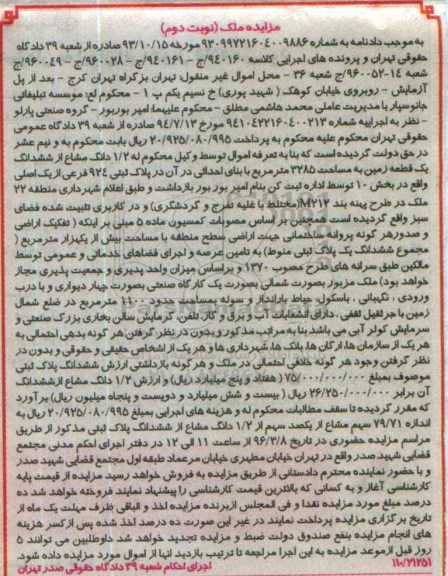 مزایده ملک (نوبت دوم)
به موجب دادنامه به شماره ۹۳۰۹۹۷۲۱۶۰۴۰۰۹۸۸۶ مورخه ۹۳/۱۰/۱۵ صادره از شعبه ۳۹ دادگاه
حقوقی تهران و پرونده های اجرایی کلاسه ۹۴۰۱۶۰/ج - ۹۴۰۱۶۱/ج - ۹۶۰۰۲۸/ج - ۹۶۰۰۴۹/ج
شعبه ۱۴-۹۶۰۰۵۲/ج شعبه ۳۶ - محل اموال غیر منقول: تهران بزرگراه تهران کرج - بعد از پل
آزمایش - روبروی خیابان کوهک (شهید پوری) خ نسیم یکم پ ۱ - محکوم له: موسسه تبلیغاتی
جانوسپار با مدیریت عاملی محمد هاشمی مطلق - محکوم علیهما: امیر پورپور - گروه صنعتی پارلو
- نظر به اجراییه شماره ۹۴۱۰۴۲۲۱۶۰۴۰۰۲۱۳ مورخ ۹۴/۷/۱۳ صادره از شعبه ۳۹ دادگاه عمومی
حقوقی تهران محکوم علیه محکوم به پرداخت ۲۰/۹۲۵/۰۸۰/۹۹۵ ریال بابت محکوم به و نیم عشر
در حق دولت گردیده است که بنا به تعرفه اموال توسط وکیل محکوم له ۱/۲ دانگ مشاع از ششدانگ
یک قطعه زمین به مساحت ۳۲۸۵ مترمربع با بنای احداثی در آن در پلاک ثبتی ۹۲۴ فرعی از یک اصلی
واقع در بخش ۱۰ توسط اداره ثبت کن بنام امیر پور پور بازداشت و طبق اعلام شهرداری منطقه ۲۲
ملک در طرح پهنه بند M۲۱۲(مختلط با غلبه تفرج و گردشگری) و در کاربری تثبیت شده فضای
سبز واقع گردیده است همچنین بر اساس مصوبات کمسیون ماده ۵ مبنی بر اینکه (تفکیک اراضی
و صدور هر گونه پروانه ساختمانی جهت اراضی سطح منطقه با مساحت بیش از یکهزار مترمربع (
مجموع ششدانگ یک پلاک ثبتی منوط) به تامین عرصه و اجرای فضاهای خدماتی و عمومی توسط
مالکین طبق سرانه های طرح مصوب ۱۳۷۰ و براساس میزان واحد پذیری و جمعیت پذیری مجاز
خواهد بود) ملک مزبور بصورت شمالی بصورت یک کارگاه صنعتی بصورت چهار دیواری و با درب
ورودی ، نگهبانی ، باسکول، حیاط بارانداز و سوله بمساحت حدود ۱۱۰۰ مترمربع در ضلع شمال
زمین با جرثقیل سقفی . دارای انشعابات آب و برق و گاز، تلفن، گرمایش سالن بخاری بزرگ صنعتی و
سرمایش کولر آبی می باشد بنا به مراتب مذکور و بدون در نظر گرفتن هر گونه بدهی احتمالی به
هر یک از سازمان ها، ارگان ها، بانک ها، شهرداری ها و هر یک از اشخاص حقیقی و حقوقی و بدون در
نظر گرفتن وجود هر گونه خلافی احتمالی در ملک و هر گونه بازداشتی ارزش ششدانگ پلاک ثبتی
موصوف بمبلغ ۷۵/۰۰۰/۰۰۰/۰۰۰ (هفتاد و پنج میلیارد ریال) و ارزش ۱/۲ دانگ مشاع از ششدانگ
آن برابر ۲۶/۲۵۰/۰۰۰/۰۰۰ ریال (بیست و شش میلیارد و دویست و پنجاه میلیون ریال) برآورد
که مقرر گردیده تا سقف مطالبات محکوم له و هزینه های اجرایی بمبلغ ۲۰/۹۲۵/۰۸۰/۹۹۵ ریال به
اندازه ۷۹/۷۱ سهم مشاع از یکصد سهم از ۱/۲ دانگ مشاع از ششدانگ پلاک ثبتی مذکور از طریق
مراسم مزایده حضوری در تاریخ ۹۶/۳/۸ از ساعت ۱۱ الی ۱۲ در دفتر اجرای احکام مدنی مجتمع
قضایی شهید صدر واقع در تهران خیابان مطهری خیابان میرعماد طبقه اول مجتمع قضایی شهید صدر
و با حضور نماینده محترم دادستانی از طریق مزایده به فروش خواهد رسید مزایده از قیمت پایه
کارشناسی آغاز و به کسانی که بالاترین قیمت کارشناسی را پیشنهاد نمایند فروخته خواهد شد ده
درصد مبلغ مورد مزایده نقدا و فی المجلس از برنده مزایده اخذ و الباقی ظرف مهلت یک ماه از
تاریخ برگزاری مزایده پرداخت نمایند در غیر این صورت ده درصد اخذ شده پس از کسر هزینه
های انجام مزایده بنفع صندوق دولت ضبط و مزایده تجدید خواهد شد داوطلبین می توانند ۵
روز قبل از موعد مزایده به این اجرا مراجعه تا ترتیب بازدید آنها از اموال مورد مزایده داده شود.
۱۱۰/۲۱۲۵۱ اجرای احکام شعبه ۳۹ دادگاه حقوقی صدر تهران